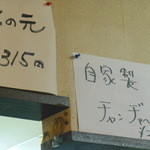 の元
315円
自家製
チャンヂャ